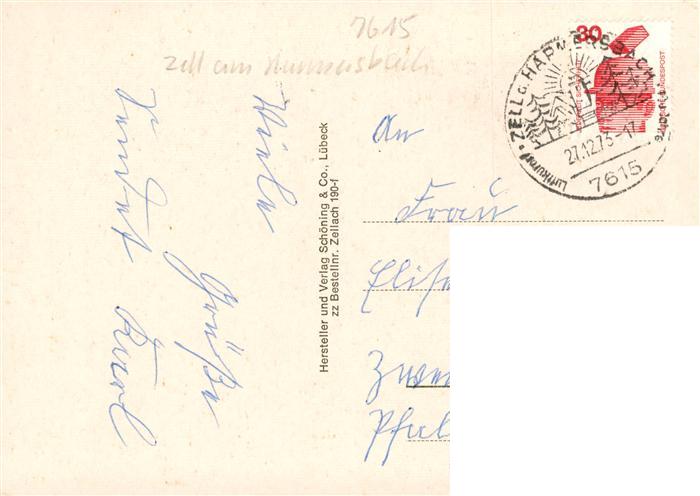 7615
Zell am Harmersbach
Viele
Grüße
Tante
Karl
Hersteller und Verlag Schöning & Co., Lübeck
zz Bestellnr. Zellach 190-f
An
Frau
Pfal
30
DEUTSCHE BUNDESPOST
ZELL a. HARMERSBACH
27.12.73-17
Luftkurort
7615